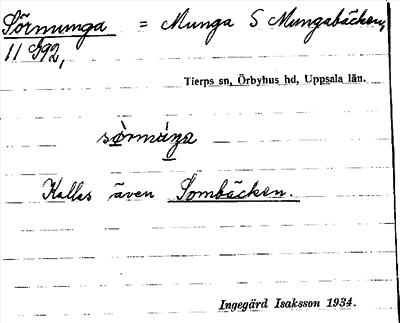 Sörmunga = Munga S Mungabäcken,
11 592,
Tierps sn, Örbyhus hd, Uppsala län.
Kallas även Sombäcken.
Ingegärd Isaksson 1934.